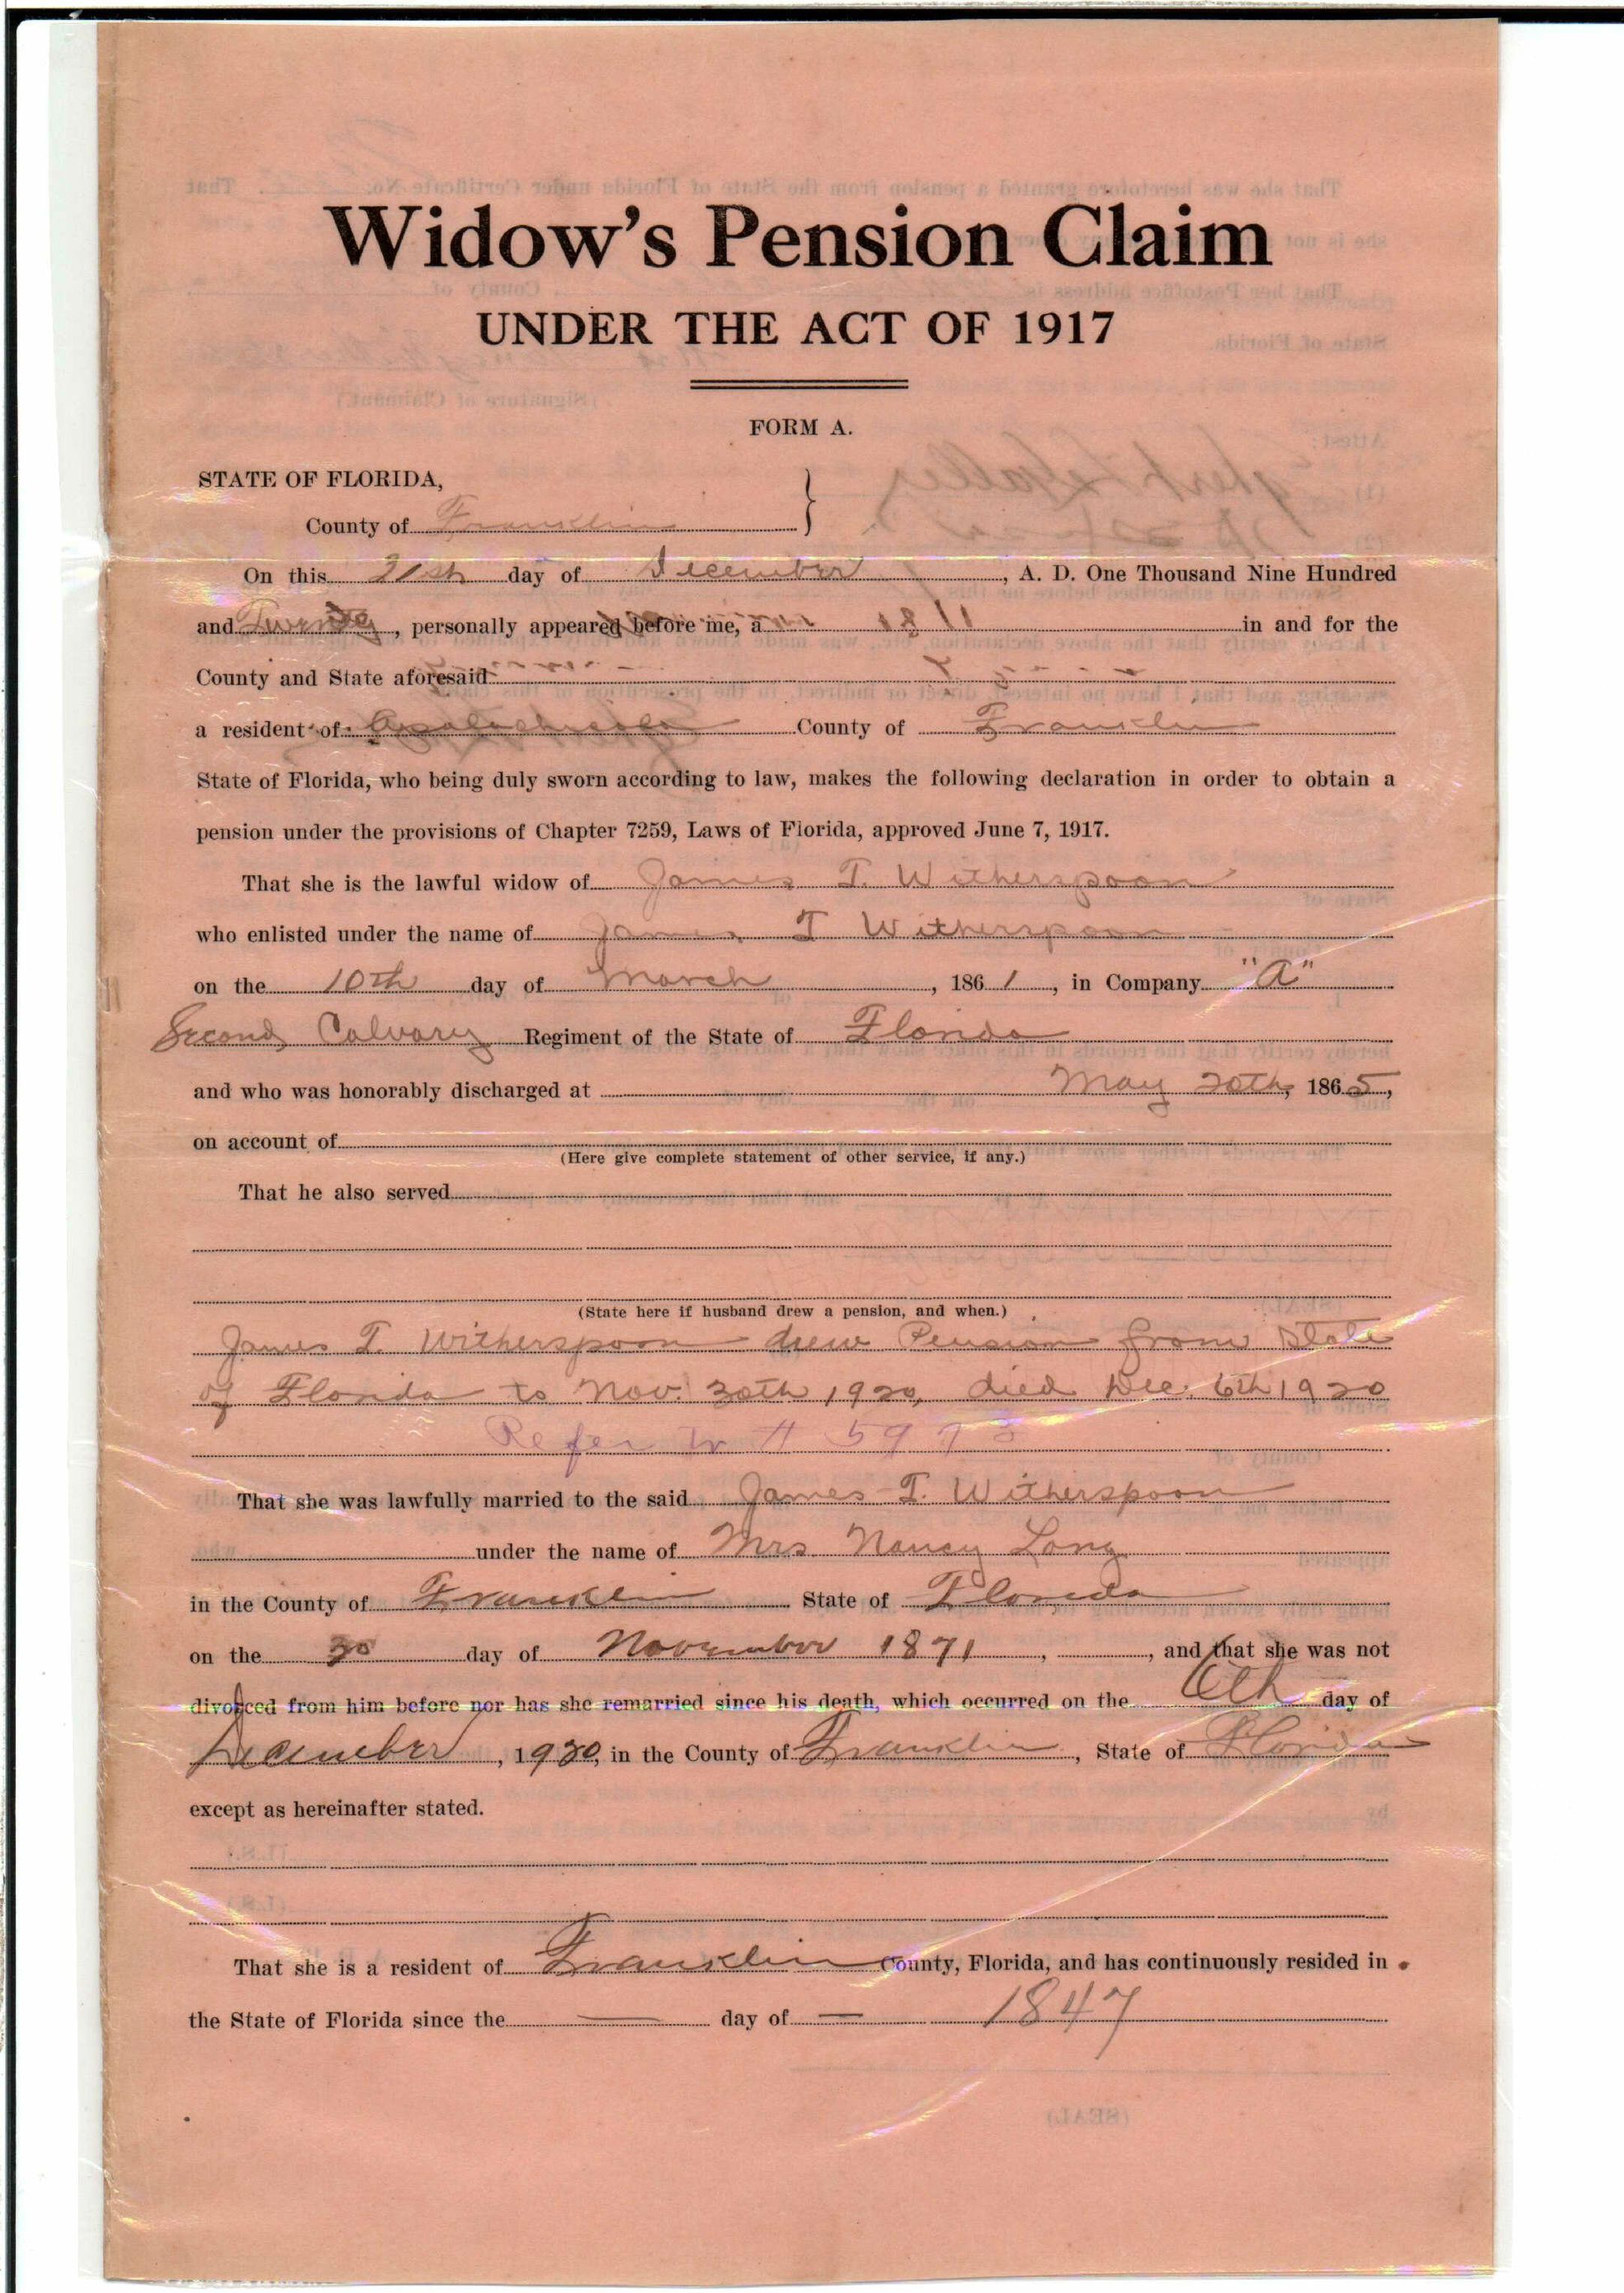 Widow's Pension Claim
UNDER THE ACT OF 1917
FORM A.
STATE OF FLORIDA,
County of Franklin
On this 21st day of December, A. D. One Thousand Nine Hundred
and Twenty, personally appeared before me, a in and for the
County and State aforesaid
a resident of Apalachicola County of Franklin
State of Florida, who being duly sworn according to law, makes the following declaration in order to obtain a
pension under the provisions of Chapter 7259, Laws of Florida, approved June 7, 1917.
That she is the lawful widow of James T. Witherspoon
who enlisted under the name of James T Witherspoon
on the 10th day of March, 1861, in Company "A"
Second Calvary Regiment of the State of Florida
and who was honorably discharged at May 20th, 1865,
on account of
(Here give complete statement of other service, if any.)
That he also served
(State here if husband drew a pension, and when.)
James T. Witherspoon drew Pension from State
of Florida to Nov. 30th 1920, died Dec. 6th 1920
Refer to # 5973
That she was lawfully married to the said James T. Witherspoon
under the name of Mrs Nancy Long
in the County of Franklin State of Florida
on the 30 day of November 1871, , and that she was not
divorced from him before nor has she remarried since his death, which occurred on the 6th day of
December, 1920, in the County of Franklin, State of Florida
except as hereinafter stated.
That she is a resident of Franklin County, Florida, and has continuously resided in
the State of Florida since the — day of — 1847